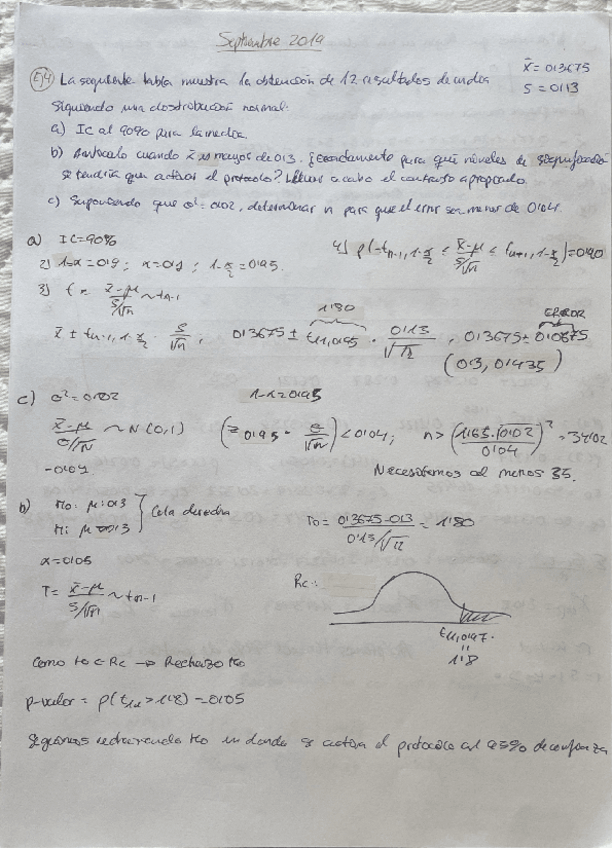 Septiembre 2019
Ej4 La seguiente tabla muestra la obtención de 12 resultados de
siguiendo una distribución normal.
x̄ = 0'3675
S = 0'13
a) IC al 90% para la media.
b) cuando x̄ es mayor de 0'3. ¿Exactamente para qué niveles de significación
se tendría que activar el protocolo? Llevar a cabo el contraste apropiado.
c) Suponiendo que σ² = 0'02, determinar n para que el error sea menor de 0'04.
a) IC = 90%
2) 1-α = 0'9 ; α = 0'1 ; 1-α/2 = 0'95.
3) t = (x̄-μ)/(S/√n) ~ tn-1
4) P(-tn-1, 1-α/2 ≤ (x̄-μ)/(S/√n) ≤ tn-1, 1-α/2) = 0'90
x̄ ± tn-1, 1-α/2 · S/√n , 0'3675 ± t11,0'95 · 0'13/√12 , 0'3675 ± 0'0675
1'80
ERROR
(0'3, 0'435)
c) σ² = 0'02
1-α = 0'95
(x̄-μ)/(σ/√n) ~ N(0,1) (z0'95 · σ/√n) < 0'04 ; n > (1'65·√0'02/0'04)² = 34'02
-0'04
Necesitamos al menos 35.
b) H0: μ = 0'3
H1: μ > 0'3
Cola derecha
T0 = (0'3675-0'3)/(0'13/√12) = 1'80
α = 0'05
T = (x̄-μ)/(S/√n) ~ tn-1
Rc:
t11,0'97.
=
1'8
Como t0 ∈ Rc → Rechazo H0
p-valor = P(t11 > 1'8) = 0'05
Seguimos rechazando H0 se activa el protocolo al 95% de confianza